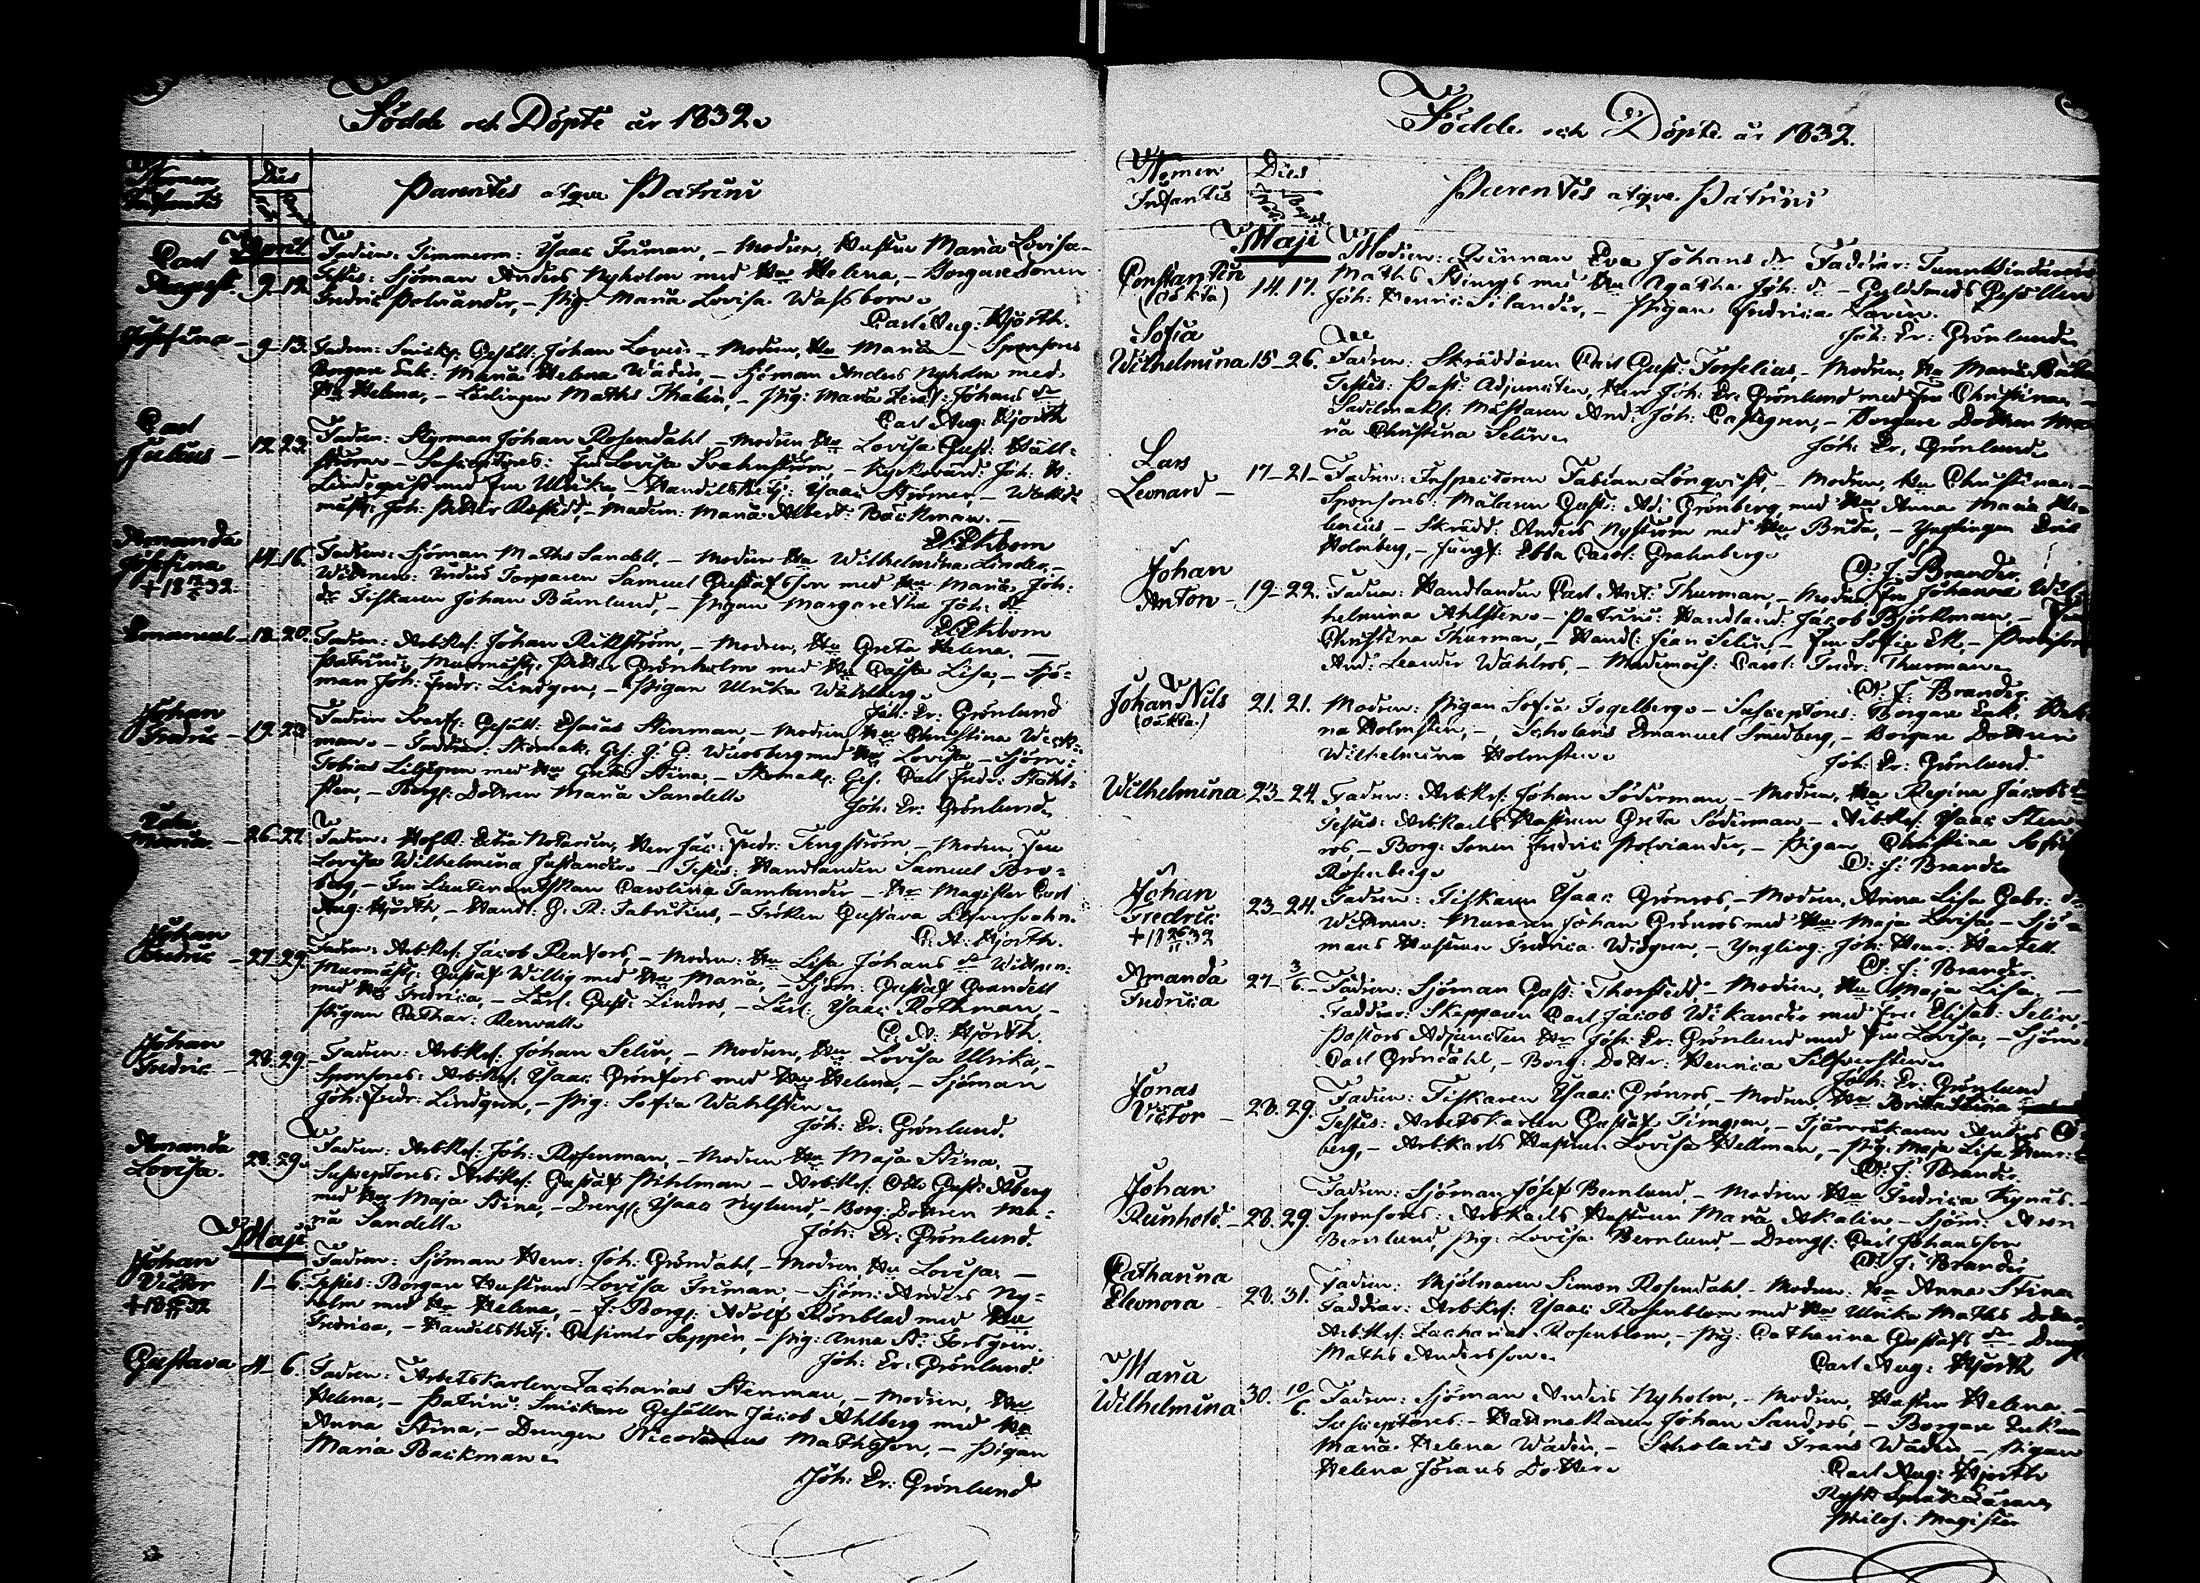 Födde och Döpte år 1832.
Nomen Infantis
Dies
Parentes atqve Patrini
April
Carl August. 9. 12. Fadren: Timmerm: Isaac Friman, – Modren, Hustru Maria Lovisa –
Testes: Sjöman Anders Nyholm med Hu Helena, – Borgare Sonen
Fredric Polviander, – Pig: Maria Lovisa
Carl Aug: Hjorth.
Josefina – 9 – 13. Fadren: Snick: Gesäll: Johan Lovén – Modren, Hu Maria – Sponsores
Borgare Enk: Maria Helena Wadén, – Sjöman Anders Nyholm med
Hu Helena, – Lärlingen Maths Thalén, – Pig: Maria Johans dr
Carl Aug: Hjorth
Carl Julius – 12. 23. Fadren: Styrman Johan Rosendahl – Modren Hu Lovisa Gust: Häll-
ström – Susceptores: Fru Lovisa Svahnström, – Kyrkovärd: Joh: H:
Lindqvist med Fru Ulrica, – Handelsbetj: Isaac Strömer, –
Joh: Petter – Madem: Maria Albert: Bäckman. –
Ekbom
Amanda Josefina 14 – 16. Fadren: Sjöman Maths Sandell, – Modren Hu Wilhelmina Linder, –
Wittnen: Torparen Samuel Gustafsson med Hu Maria Joh:
dr Fiskaren Johan Bärnlund, – Pigan Margaretha Joh: dr
Ekbom
Emanuel – 18 – 20. Fadren: Arb:k: Johan – Modren, Hu Greta Helena. –
Patrini: Murmäst: Petter Grönholm med Hu Cajsa Lisa, – Sjö-
man Joh: Fredr: Lindgren, – Pigan Ulrika Wahlberg.
Joh: Er: Grönlund
Johan Fredric – 19. 23. Fadren Gesäll: Esaias Stenman, – Modren, Hu Christina Weck-
man. – Faddrar: Skomak: Ges: G: G: med Hu Lovisa, – Sjöm:
Tobias Liljegren med Hu Greta Stina, – Skomak: Ges: Carl Fredr: Stahl-
sten, – Borg: Dottren Maria Sandell.
Joh: Er: Grönlund.
Maria – 26 – 27. Fadren: Notarien, Herr Jac: Fredr: Tengström, – Modren, Fru
Lovisa Wilhelmina – Testes: Handlanden Samuel
– Fru Lieutenantskan Carolina Tamlander – Hr Magister Carl
Aug: Hjorth, – Handl: G. R: Fabritius, – Fröken Gustava
C. A: Hjorth.
Johan Fredric – 27. 29. Fadren: Arb:k: Jacob Renfors, – Modren: Hu Lisa Johans dr Wittnen:
Murmäst: Gustaf Willig med Hu Maria, – Sjöm: Gustaf Grandell
med Hu Fredrica, – Lärl: Gust: Lindros, – Lärl: Isaac Rothman, –
Pigan Cathar: Renvall.
C. A: Hjorth.
Johan Fredric – 28. 29. Fadren: Arb:k: Johan Selin, – Modren, Hu Lovisa Ulrika, –
Sponsores: Arb:k: Isaac Grönfors med Hu Helena, – Sjöman
Joh: Fredr: Lindgren, – Pig: Sofia Wahlsten
Joh: Er: Grönlund.
Amanda Lovisa. 28. 29. Fadren: Arb:k: Joh: Rosenman, – Modren Hu Maja Stina, –
Susceptores: Arb:k: Gustaf Pihlman – Arb:k: Gust: Åberg
med Hu Maja Stina, – Dreng: Isaac Nylund, – Borg: Dottren Ma-
ria Sandell.
Joh: Er: Grönlund.
Maji
Johan Victor 1 – 6. Fadren: Sjöman Henr: Joh: Gröndahl, – Modren, Hu Lovisa –
Testes: Borgare Hustrun Lovisa Friman, – Sjöm: Anders Ny-
holm med Hu Helena, – Borg: Adolf Rönblad med Hu
Fredrica, – Handelsbetj: Casimir Seppén, – Pig: Anna St: Forsgren.
Joh: Er: Grönlund.
Gustava 4 – 6. Fadren: Arbetskarlen Zacharias Stenman, – Modren, Hu
Helena, – Patrini: Snickare Gesällen Jacob Ahlberg med Hu
Anna Stina, – Drengen Nicodemus Mathsson, – Pigan
Maria Backman.
Joh: Er: Grönlund
Födde och Döpte år 1832.
Nomen Infantis
Dies
Parentes atqve Patrini
Maji
Constantin (oäkta) 14. 17. Modren: Qvinnan Eva Johans dr Faddrar: Tunnbindaren
Maths med Hu Agatha Joh: dr – Guldsmeds Gesällen
Joh: Henric Silander, – Pigan Fredrica Lovén.
Joh: Er: Grönlund
Sofia Wilhelmina 15 – 26. Fadren: Skräddaren Carl Gust: Forselius, – Modren, Hu Maria
Testes: Past: Adjuncten, Herr Joh: Er: Grönlund med Fru Christina, –
Sadelmak: Mästaren And: Joh: Castegren, – Borgare Dottren Ma-
ria Christina Selin.
Joh: Er: Grönlund
Lars Leonard – 17 – 21 – Fadren: Inspectoren Fabian Lönqvist, – Modren, Hu Christina, –
Sponsores: Målaren Gust: Ad: Grönberg, med Hu Anna Maria He-
lenius – Skrädd: Anders Nyström med Hu Brita, – Ynglingen
Holmberg, – Jungf: Ebba Carol: Grahnberg.
O. J. Brander.
Johan Anton – 19 – 22. Fadren: Handlanden Carl Ant: Thurman, – Modren, Fru Johanna Wil-
helmina Ahlsten. – Patrini: Handland: Jacob Björkman, – Fru
Christina Thurman, – Handl: Jean Selin, – Fru Sofia Ek, – Provisor
And: Leander Wahlros, – Mademois: Carol: Fredr: Thurman.
O. J. Brander.
Johan Nils (oäkta.) 21. 21. Modren: Pigan Sofia Fogelberg. – Susceptores: Borgare Enk:
na Holmsten, –, Scholaris Emanuel Smedberg, – Borgare Dottren
Wilhelmina Holmsten.
Joh: Er: Grönlund.
Wilhelmina 23 – 24. Fadren: Arb:k: Johan Söderman, – Modren, Hu Regina Jacobs dr
Testes: Arb:karls Hustrun Greta Söderman – Arb:k: Isaac Sten-
ros, – Borg: Sonen Fredric Polviander, – Pigan Christina Sofia
Rosenberg.
O. J. Brander
Johan Fredric 23 – 24. Fadren: Fiskaren Isaac Grönros, – Modren, Anna Lisa Gabr: dr
Wittnen: Muraren Johan Grönroos med Hu Maja Lovisa, – Sjö-
mans Hustrun Fredrica Widgren, – Yngling: Joh: Henr: Hartell.
O. J. Brander.
Amanda Fredrica 27 – 3/6 – Fadren: Sjöman Gust: Thorstedt, – Modren, Hu Maja Lisa, –
Faddrar: Skepparen Carl Jacob Wikander med Fru Elisab: Selin, –
Pastors Adjuncten Hr Joh: Er: Grönlund med Fru Lovisa, – Sjöm:
Carl Gröndahl, – Borg: Dottr: Henrica Silfversten
Joh: Er: Grönlund
Jonas Victor – 28. 29. Fadren: Fiskaren Isaac Grönros, – Modren Hu Brita Stina
Testes: Arbetskarlen Gustaf Timgren, – Tjärvräkaren Anders
berg, – Arb:karls Hustrun Lovisa Hellman, – Pig: Maja Lisa Henr: dr
O. J. Brander.
Johan Reinhold – 28. 29. Fadren: Sjöman Josef Bernlund, – Modren Hu Fredrica
Sponsores: Arb:karls Hustrun Maria Akalin, – Sjöm:
Bernlund, Pig: Lovisa Bernlund, – Dreng: Carl Johansson
O. J. Brander
Catharina Eleonora 28. 31. Fadren: Mjölnaren Simon Rosendahl, – Modren: Hu Anna Stina
Faddrar: Arb:k: Isaac Rosenblom med Hu Ulrika Maths Dotter,
Arb:k: Zacharias Rosenblom, – Pig: Catharina Gustafs dr – Dreng
Maths Andersson.
Carl Aug: Hjorth
Maria Wilhelmina 30. 10/6. Fadren: Sjöman Anders Nyholm, – Modren, Hustru Helena –
Susceptores: – Hattmakaren Johan Sandros, – Borgare Enkan
Maria Helena Wadén, – Scholaris Frans Wadén – Pigan
Helena Jörans Dotter.
Carl Aug: Hjorth
Rysk Språk Lärare
Philos. Magister